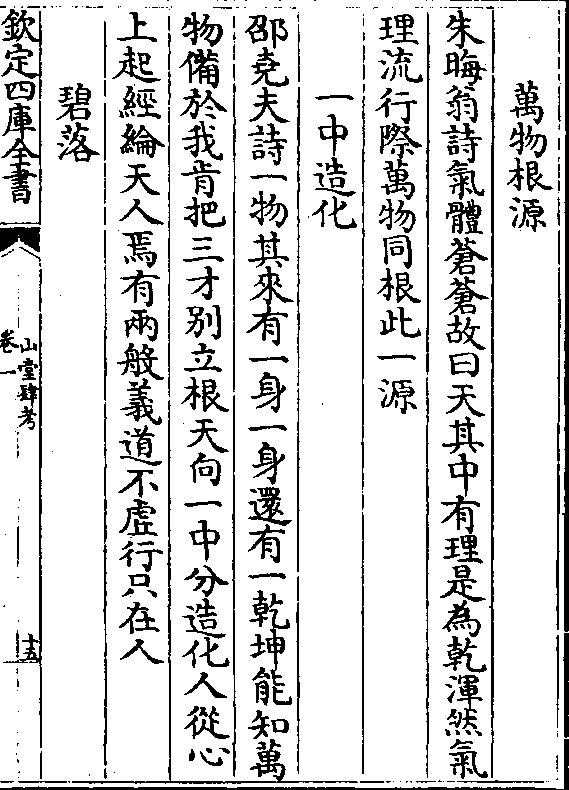 萬物根源
朱晦翁詩氣體蒼蒼故曰天其中有理是為乾渾然氣
理流行際萬物同根此一源
一中造化
邵堯夫詩一物其來有一身一身還有一乾坤能知萬
物備於我肯把三才别立根天向一中分造化人從心
上起經綸天人焉有兩般義道不虚行只在人
碧落
欽定四庫全書
山堂肆考
卷一
十五